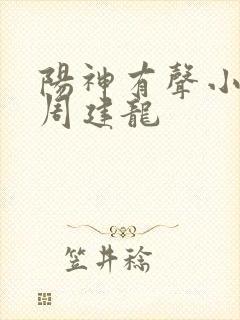 陽神有聲小
周建龍
笠井稔